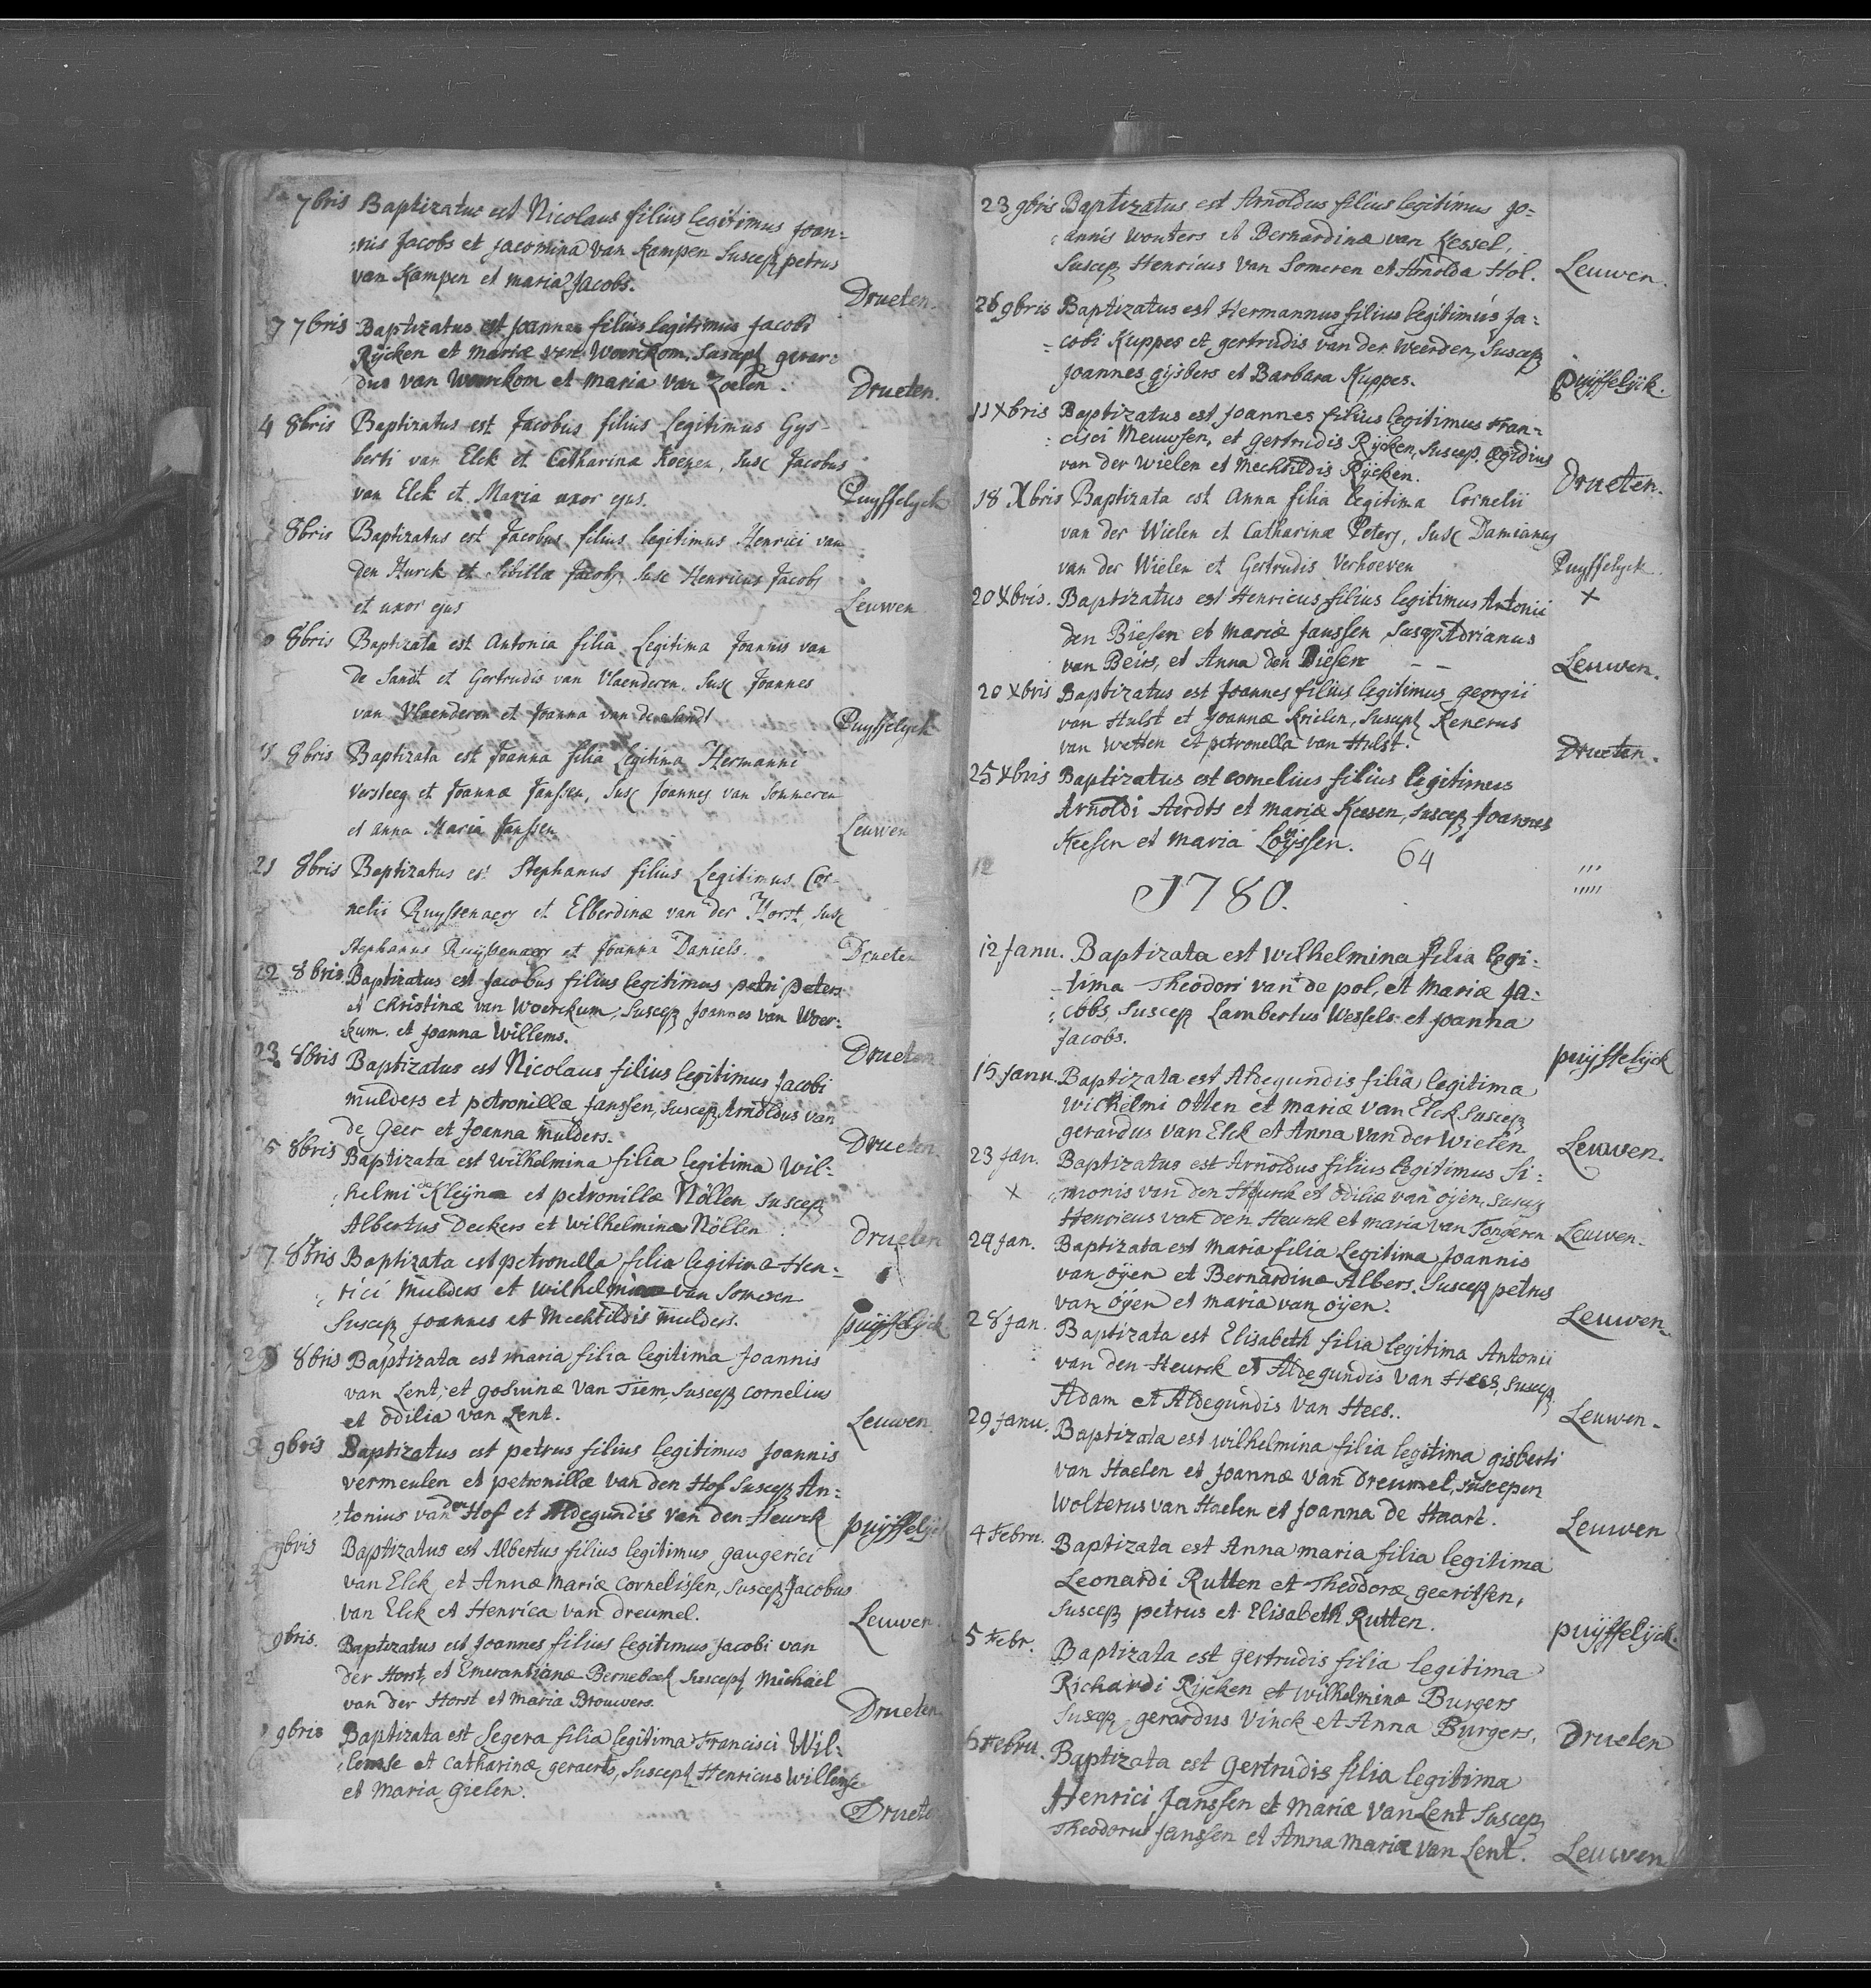 7bris Baptizatus est Nicolaus filius legitimus Joan=
:nis Jacobs et Jacomina van Kampen Suscep petrus
van Kampen et maria Jacobs.
Drueten.
7 7bris Baptizatus est Joannes filius legitimus Jacobi
Rijcken et mariæ van Woerckom, Suscept gerar=
dus van Woerckom et maria van Zoelen.
Drueten.
4 8bris Baptizatus est Jacobus filius Legitimus Gys-
berti van Elck et Catharina Koenen, Susc Jacobus
van Elck et Maria uxor ejus.
Puyffelyck
8bris Baptizatus est Jacobus filius legitimus Henrici van
den Hurck et Sibillæ Jacobs, Susc Henricus Jacobs
et uxor ejus
Leuwen
8bris Baptizata est Antonia filia Legitima Joannis van
de Sandt et Gertrudis van Vlaenderen. Susc Joannes
van Vlaenderen et Joanna van de Sandt
Puyffelyck
8bris Baptizata est Joanna filia Legitima Hermanni
Versteeg et Joannæ Janssen, Susc Joannes van Sommeren
et anna Maria Janssen
Leuwen
21 8bris Baptizatus est Stephanus filius Legitimus Cor-
nelii Ruyssenaers et Elberdinæ van der Horst, Susc
Stephanus Ruyssenaers et Joanna Daniels.
Drueten
22 8bris Baptizatus est Jacobus filius legitimus petri peters
et Christinæ van Woerckum, Suscep Joannes van Woer=
:kum et Joanna Willems.
Drueten
23 8bris Baptizatus est Nicolaus filius legitimus Jacobi
mulders et petronillæ Janssen, Suscep Arnoldus van
de Geer et Joanna mulders.
Drueten.
8bris Baptizata est Wilhelmina filia legitima Wil=
:helmi de Kleijne et petronillæ Nöllen Suscep
Albertus Deckers et Wilhelmina Nöllen
Drueten
8bris Baptizata est petronella filia legitima Hen=
:rici Mulders et Wilhelmina van Someren
Suscep Joannes et Mechtildis mulders.
puijffelijck
8bris Baptizata est maria filia legitima Joannis
van Lent, et goswinæ van Tiem, Suscep cornelius
et odilia van Lent.
Leuwen
9bris Baptizatus est petrus filius legitimus Joannis
vermeulen et petronillæ van den Hof Suscep An=
:tonius van den Hof et Aldegundis van den Heurck
puijffelijck
9bris Baptizatus est Albertus filius legitimus gaugerici
van Elck et Annæ mariæ cornelissen, Suscep Jacobus
van Elck et Henrica van dreumel.
Leuwen.
9bris. Baptizatus est Joannes filius legitimus Jacobi van
der Horst, et Emerantianæ Bernebeek Suscept Michaël
van der Horst et maria Brouwers.
Drueten
9bris Baptizata est Segera filia legitima Francisci Wil=
:lemse et catharinæ geraerts, Suscept Henricus Willemse
et Maria Gielen.
Drueten
23 9bris Baptizatus est Arnoldus filius legitimus Jo=
:annis wouters et Bernardinæ van Kessel,
Suscep Henricus van Someren et Arnolda Hol.
Leuwen.
26 9bris Baptizatus est Hermannus filius legitimus Ja=
=cobi Kuppes et gertrudis van der Weerden, Suscep
Joannes gijsbers et Barbara Kuppes.
puijffelijck.
11 Xbris Baptizatus est Joannes filius legitimus Fran=
:cisci Meuwsen, et gertrudis Rijcken, Suscep. Ægidius
van der Wielen et Mechtildis Rijcken.
Drueten.
18 Xbris Baptizata est Anna filia legitima Cornelii
van der Wielen et Catharinæ Peters, Susc Damianus
van der Wielen et Gertrudis Verhoeven
Puyffelyck
20 Xbris. Baptizatus est Henricus filius legitimus Antonii
X
den Biesen et mariæ Janssen Suscep Adrianus
van Beirs, et Anna den Biesen - -
Leuwen.
20 Xbris Baptizatus est Joannes filius legitimus georgii
van Hulst et Joannæ Krielen, Suscept Renerus
van Wetten et petronella van Hulst.
Drueten.
25 Xbris Baptizatus est cornelius filius legitimus
Arnoldi Aerdts et mariæ Keesen, Suscep Joannes
Keesen et maria Loyssen.
64
12
1780.
12 Janu. Baptizata est Wilhelmina filia legi=
-tima Theodori van de pol, et Mariæ Ja=
:cobs, Suscep Lambertus Wessels et Joanna
Jacobs.
puijffelijck
15 Janu. Baptizata est Aldegundis filia legitima
Wilhelmi Otten et mariæ van Elck Suscep
gerardus van Elck et Anna van der Wielen
Leuwen.
23 Jan. Baptizatus est Arnoldus filius legitimus Si=
X :monis van den Heurck et odiliæ van oijen, Suscep
Henricus van den Heurck et maria van Tongeren
Leuwen.
24 Jan. Baptizata est maria filia Legitima Joannis
van oijen et Bernardinæ Albers. Suscep petrus
van oijen et maria van oijen.
Leuwen.
28 Jan. Baptizata est Elisabeth filia legitima Antonii
van den Heurck et Aldegundis van Hees, Suscep
Adam et Aldegundis van Hees.
Leuwen.
29 Janu. Baptizata est wilhelmina filia legitima gisberti
van Haelen et Joannæ van dreumel, Suscepen
Wolterus van Haelen et Joanna de Haart.
Leuwen
4 Febru. Baptizata est Anna maria filia legitima
Leonardi Rutten et Theodoræ geeritsen,
Suscep petrus et Elisabeth Rutten.
puijffelijck.
5 Febr. Baptizata est gertrudis filia legitima
Richardi Rijcken et Wilhelminæ Burgers
Suscep gerardus Vinck et Anna Burgers.
Drueten
6 Febru. Baptizata est Gertrudis filia legitima
Henrici Janssen et Mariæ van Lent Suscep
Theodorus Janssen et Anna Maria van Lent.
Leuwen